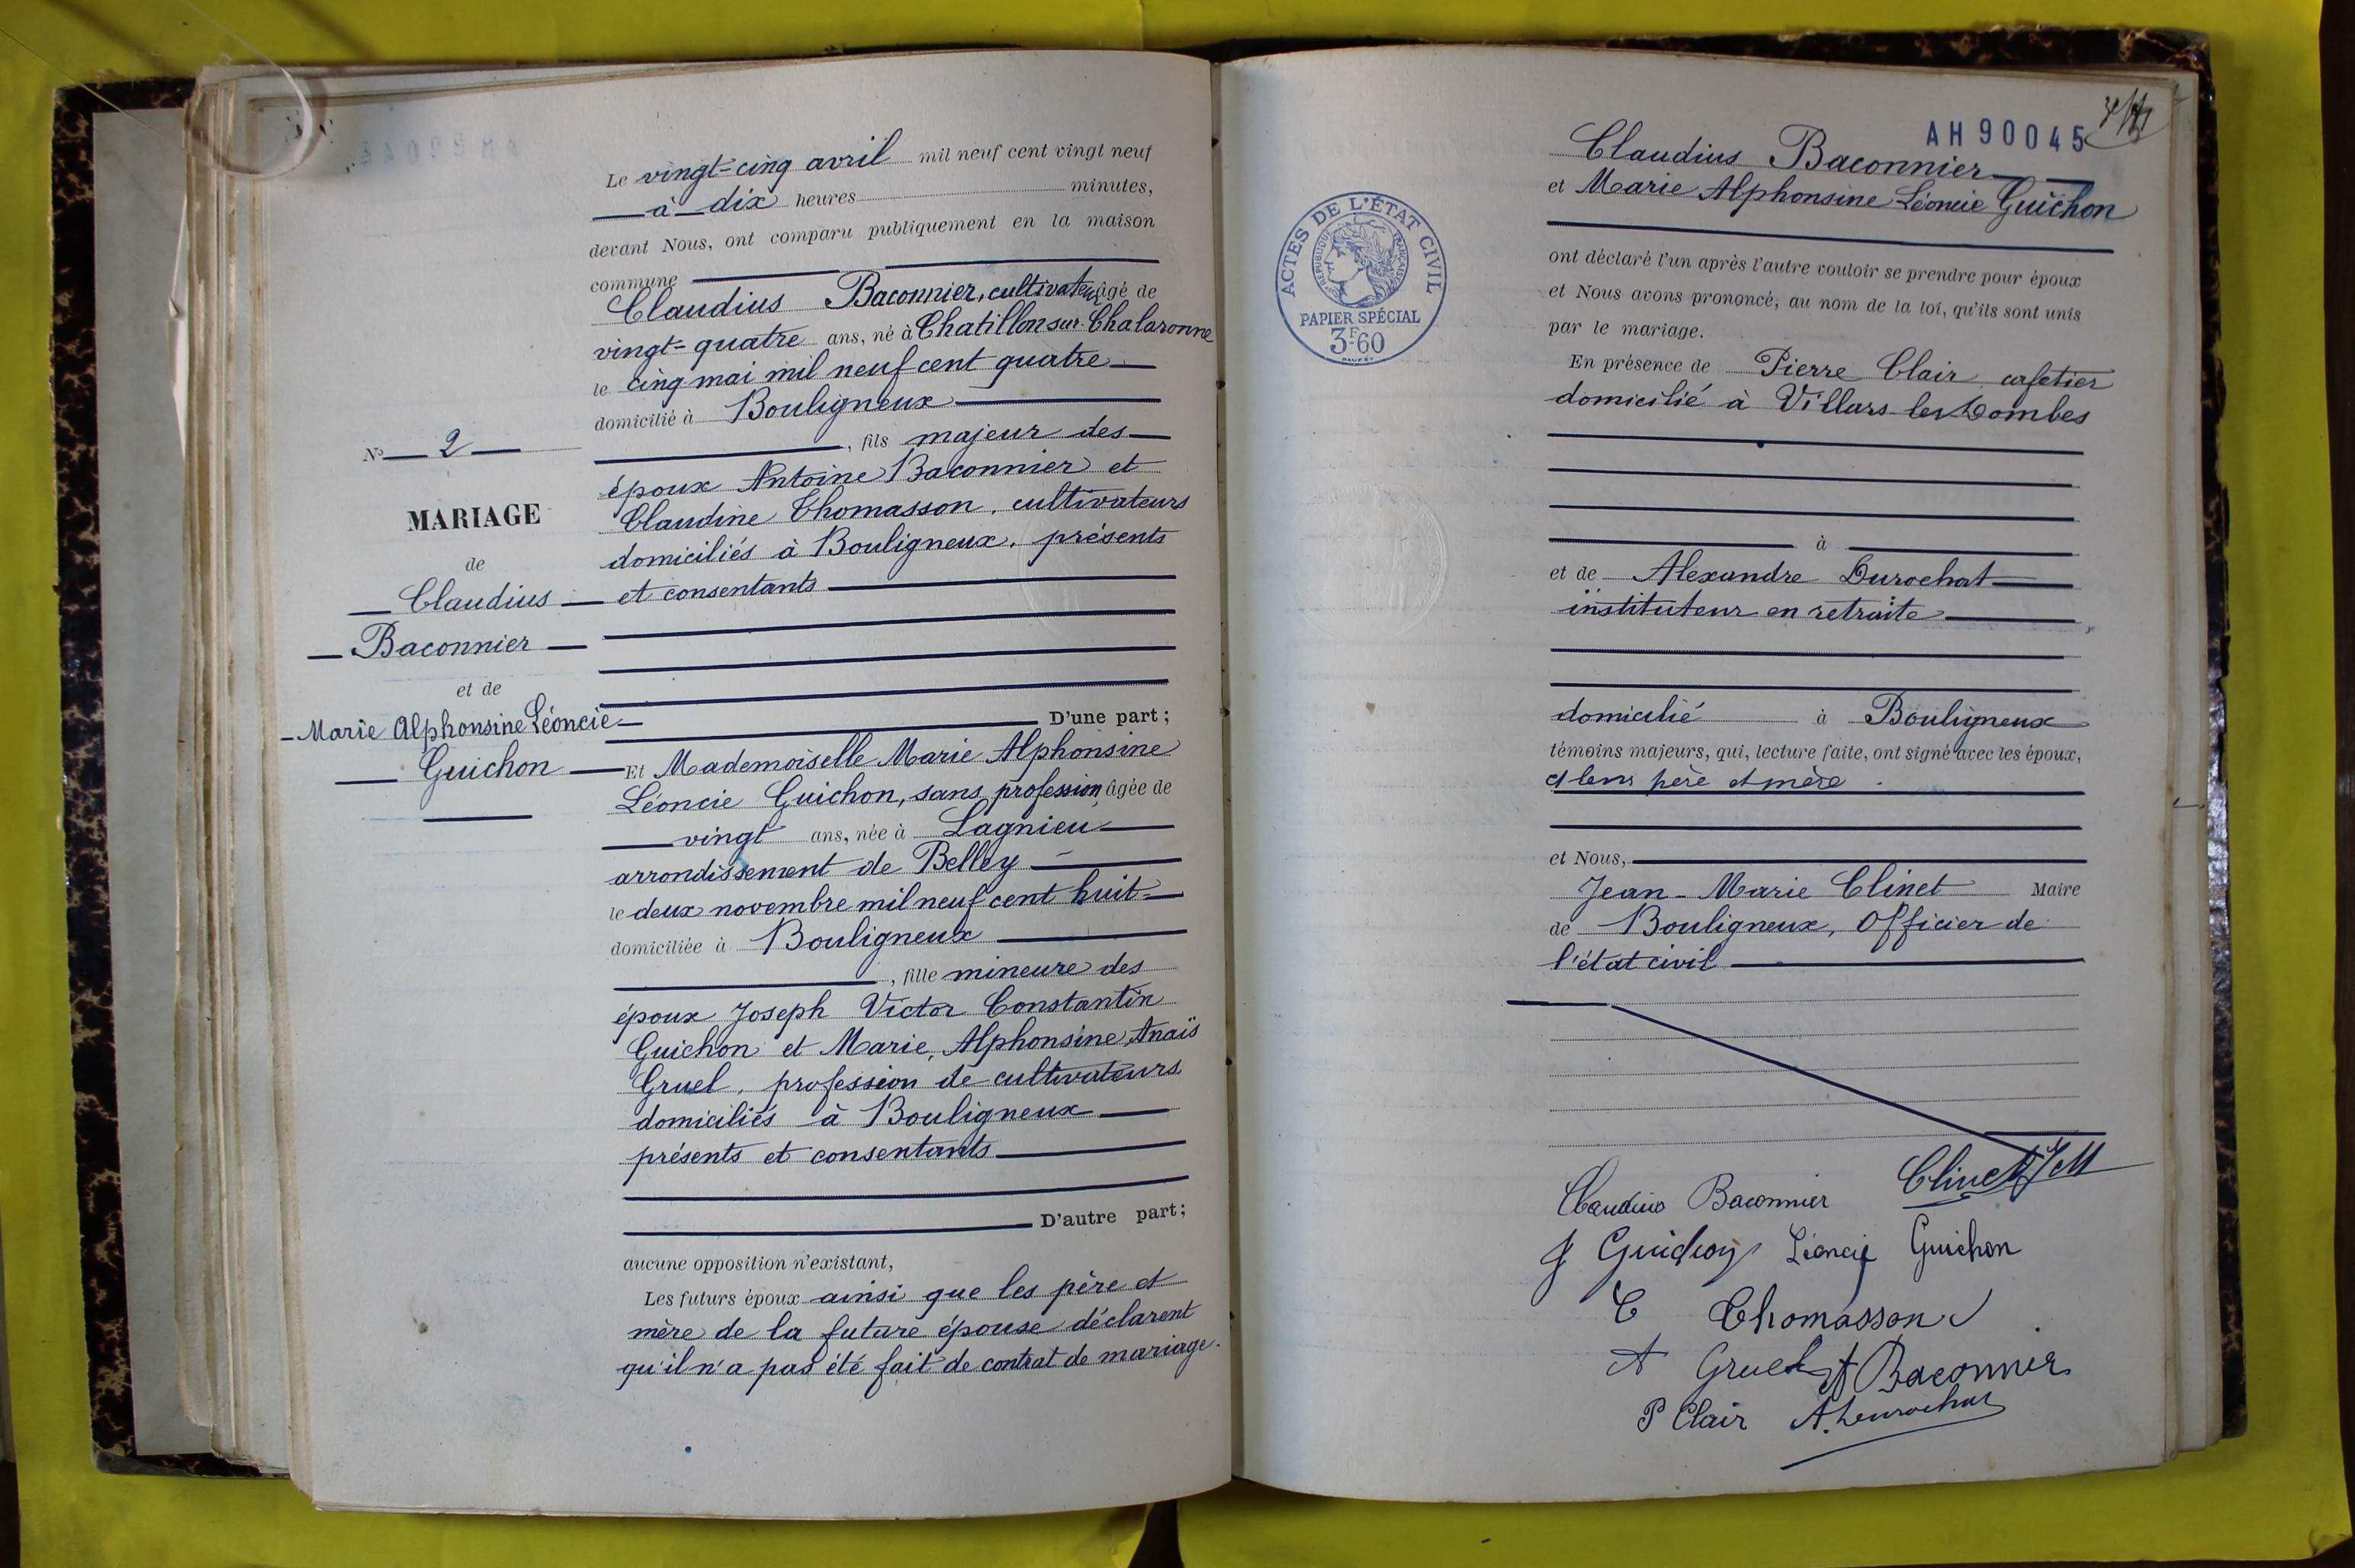 Le vingt-cinq avril mil neuf cent vingt neuf
à dix heures minutes,
devant Nous, ont comparu publiquement en la maison
commune
Claudius Baconnier, cultivateur âgé de
vingt-quatre ans, né à Chatillon sur Chalaronne
le cinq mai mil neuf cent quatre
domicilié à Bouligneux
, fils majeur des
époux Antoine Baconnier et
Claudine Thomasson, cultivateurs
domiciliés à Bouligneux, présents
et consentants
D'une part;
Et Mademoiselle Marie Alphonsine
Léoncie Guichon, sans profession, âgée de
vingt ans, née à Lagnieu
arrondissement de Belley
le deux novembre mil neuf cent huit
domiciliée à Bouligneux
, fille mineure des
époux Joseph Victor Constantin
Guichon et Marie, Alphonsine, Anaïs
Gruel, profession de cultivateurs
domiciliés à Bouligneux
présents et consentants
D'autre part;
aucune opposition n'existant,
Les futurs époux ainsi que les père et
mère de la future épouse déclarent
qu'il n'a pas été fait de contrat de mariage.
No 2
MARIAGE
de
Claudius
Baconnier
et de
Marie Alphonsine Léoncie
Guichon
AH90045
ACTES DE L'ÉTAT CIVIL
RÉPUBLIQUE FRANÇAISE
PAPIER SPÉCIAL
3F60
Claudius Baconnier
et Marie Alphonsine Léoncie Guichon
ont déclaré l'un après l'autre vouloir se prendre pour époux
et Nous avons prononcé, au nom de la loi, qu'ils sont unis
par le mariage.
En présence de Pierre Clair, cafetier
domicilié à Villars les Dombes
à
et de Alexandre Durochat
instituteur en retraite
domicilié à Bouligneux
témoins majeurs, qui, lecture faite, ont signé avec les époux,
et leurs père et mère.
et Nous,
Jean-Marie Clinet Maire
de Bouligneux, Officier de
l'état civil
Claudius Baconnier Clinet JM
J Guichon Léoncie Guichon
C Thomasson
A Gruel A Baconnier
P Clair A. Durochat